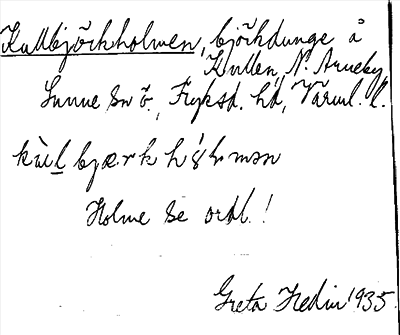 Kullbjörkholmen, björkdunge å
Kullen, N. Arneby,
Sunne sn ö., Fryksd. hd, Värml. l.
Holme se ordl.!
Greta Hedin 1935.